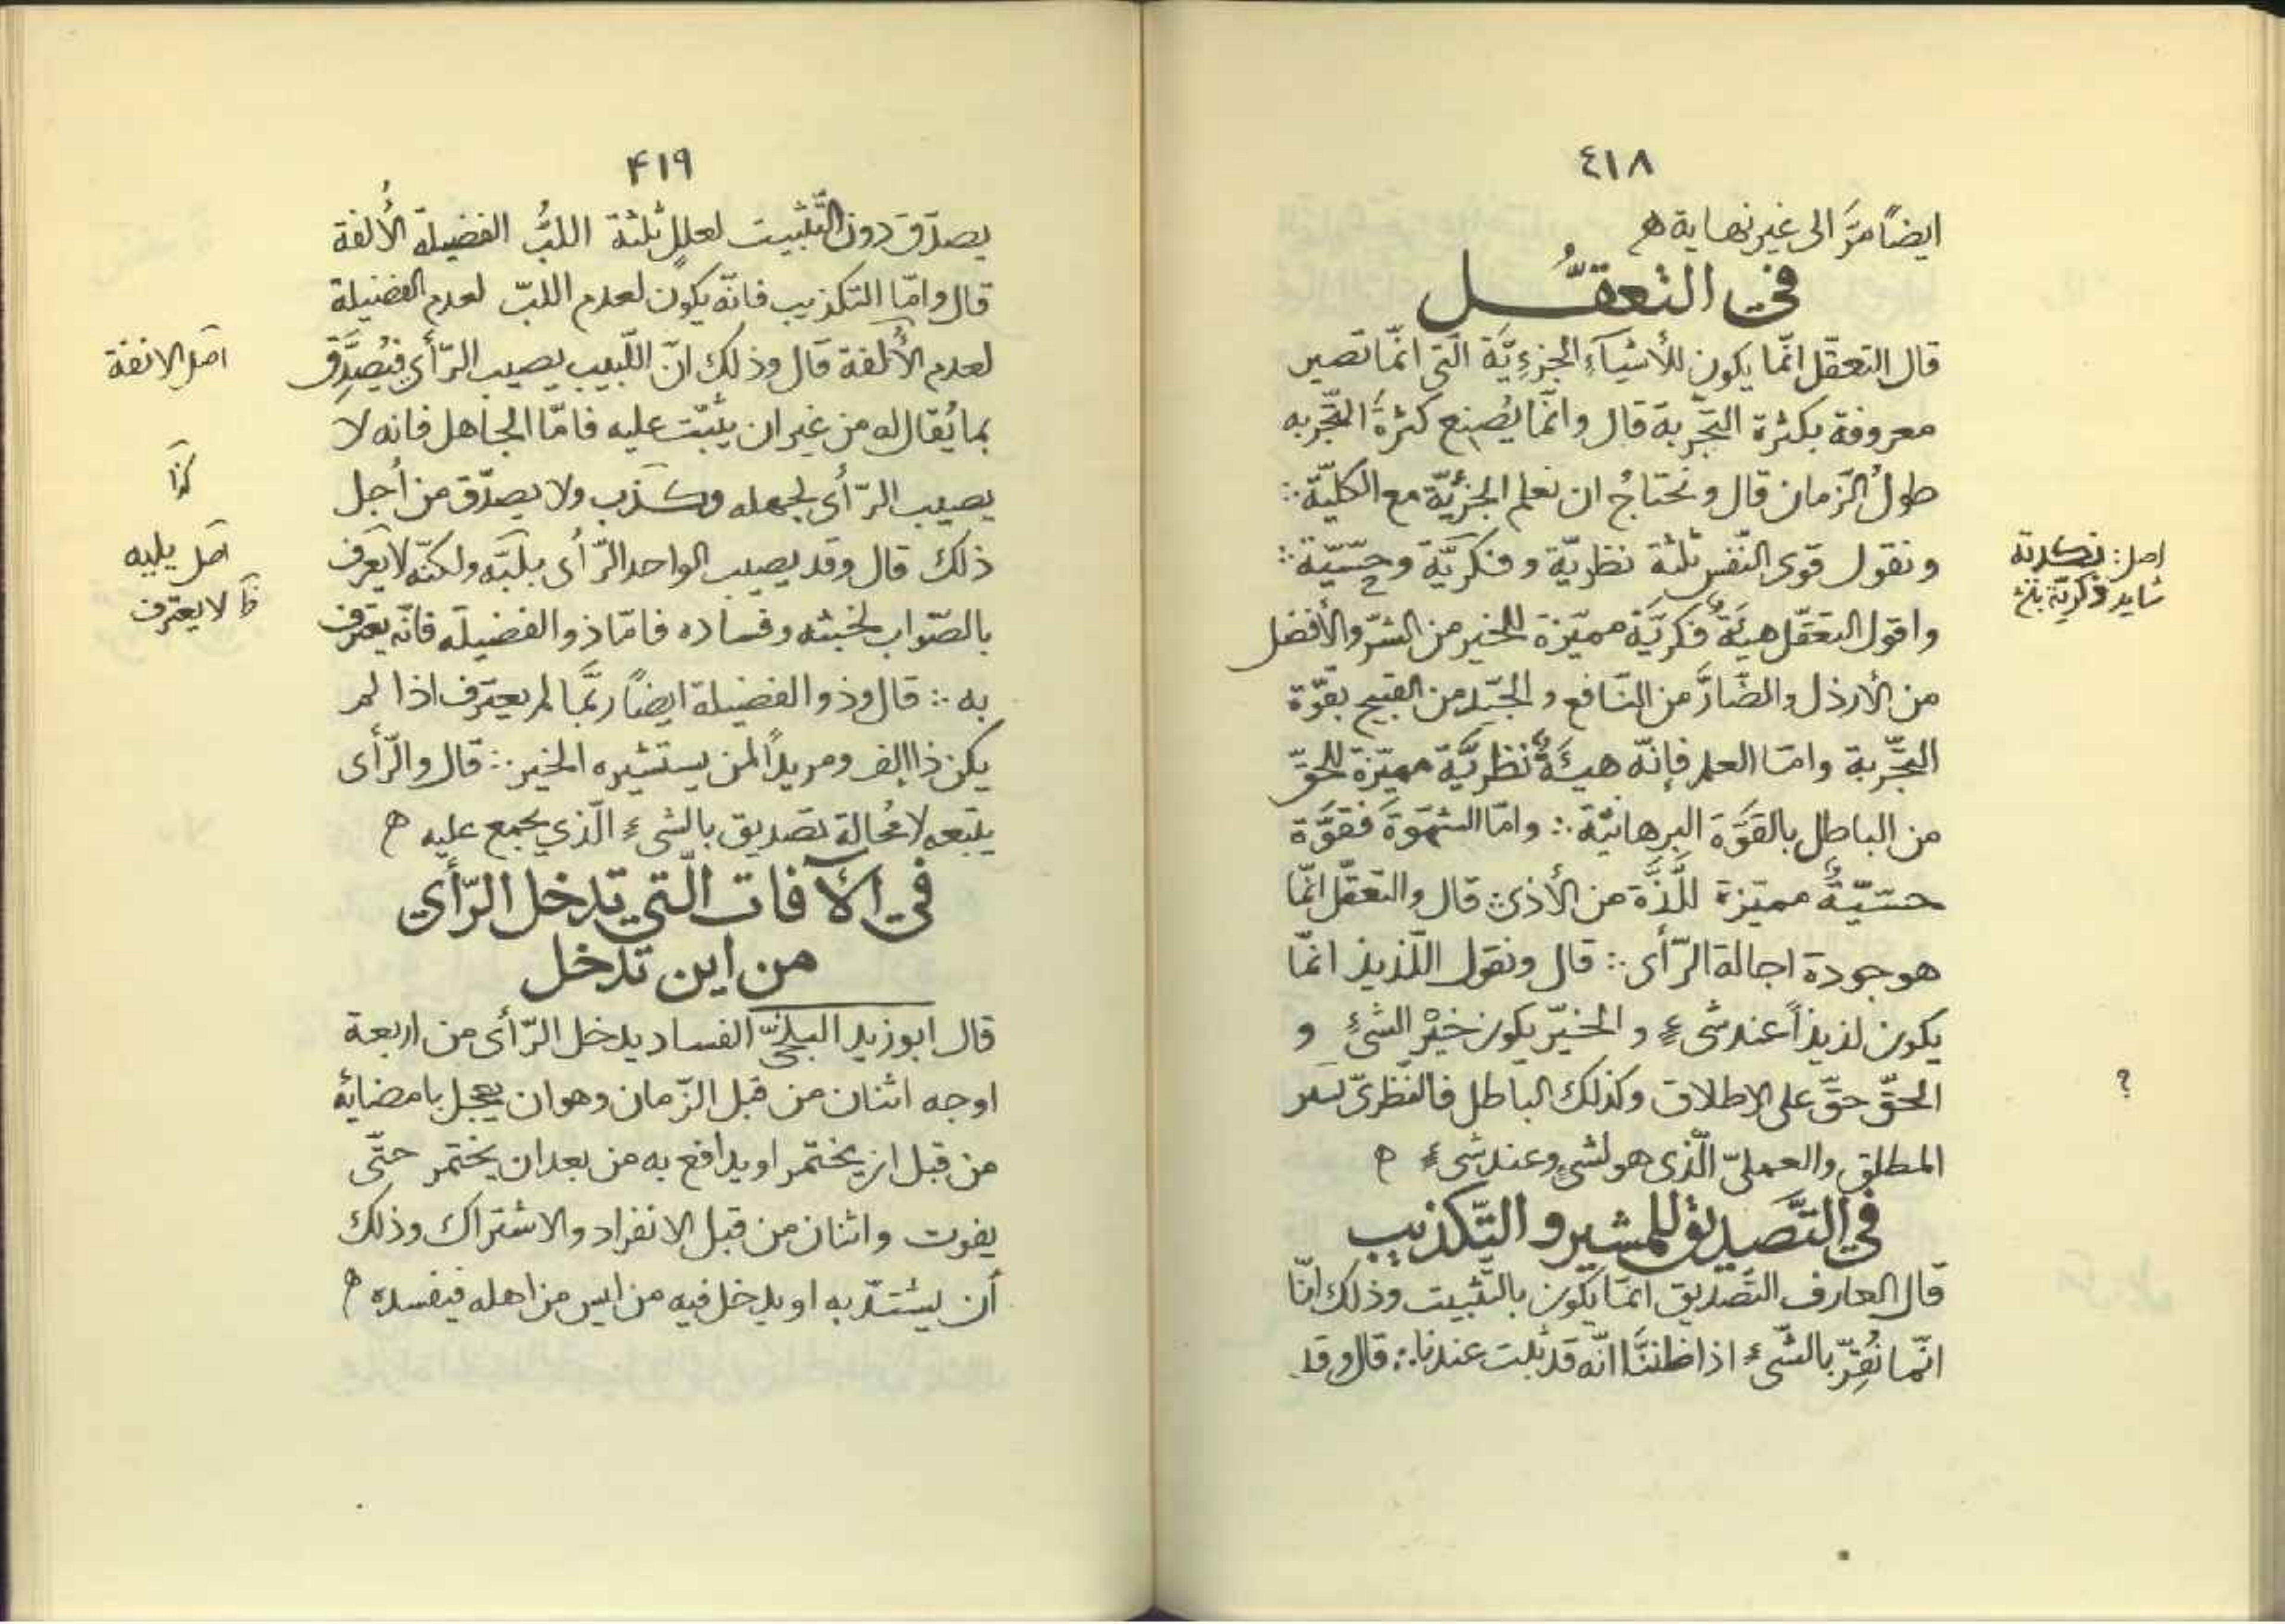 ٤١٨
ايضاً مرَّ الى غير نهاية ه
في التعقُّل
قال التعقّل انّما يكون للأشيآءِ الجزءِيَّة الّتى انّما تصير
معروفة بكثرة التجّربة قال وانّما يُصنع كثرةَ التجّربه
طولُ الزّمان قال ونحتاجُ ان نعلم الجزئيّة مع الكليّة ∴
ونقول قوى النّفس ثلثة نظريّة وفكريَّة وحسّيّة ∴
واقول التعقّل هيئةٌ فكريَّة مميّزة للخير من الشرّ والأفضل
من الأرذل والضّارَّ من النّافع والجيّد من القبيح بقوّة
التجّربة وامّا العلم فإنّه هيئةٌ نظريَّة مميّزة للحقّ
من الباطل بالقوّة البرهانيّة ∴ وامّا الشهوَة فقوَّة
حسّيّةٌ مميّزة للَّذَّة من الأذى ∴ قال والتعقّل انّما
هو جودة اجالة الرّأى ∴ قال ونقول اللّذيذ انّما
يكون لذيذاً عند شىءٍ والخيّر يكون خيْر الشىءِ و
الحقّ حقّ على الاطلاق وكذلك الباطل فالنّظرىّ
المطلق والعملىّ الّذى هو لشىءٍ وعند شىءٍ ه
في التَّصديق للمشير والتّكذيب
قال العارف التّصديق انّما يكون بالتّثبيت وذلك انّا
انّما نُقِرّ بالشّىءِ اذا ظننَّا انّه قد ثبت عندنا ∴ قال وقد
اصل: تكدىة
شايد فكريّة بلش
؟
۴۱۹
يصدّق دون التّثبيت لعلل ثلثة اللبُّ الفضيلة الأُلفة
قال وامّا التكذيب فانّه يكون لعدم اللبّ لعدم الفضيلة
لعدم الأُلفة قال وذلك انّ اللّبيب يصيب الرّأي فيُصَدِّق
بما يُقال له من غير ان يثبّت عليه فامّا الجاهل فانه لا
يصيب الرّأى لجهله وكذب ولا يصدّق من أجل
ذلك قال وقد يصيب الواحد الرّأى بلبّه ولكنّه لا يعرف
بالصّواب لخبثه وفساده فامّا ذو الفضيلة فانّه يعترف
به ∴ قال وذو الفضيلة ايضاً ربّما لم يعترف اذا لم
يكن ذا الف ومريداً لمن يستشيره الخير ∴ قال والرّأى
يتبعه لا مُحالة تصديق بالشىءِ الّذي يجمع عليه ه
في الآفات الّتي تدخل الرّأي
من اين تدخل
قال ابو زيد البلخىّ الفساد يدخل الرّأى من اربعة
اوجه اثنان من قبل الزّمان وهو ان يعجل بامضائه
من قبل ان يختمر او يدافع به من بعد ان يختمر حتّى
يفوت واثنان من قبل الانفراد والاشتراك وذلك
أن يستبدّ به او يدخل فيه من ليس من اهله فيفسده ه
اصل الانفة
كذا
اصل يليه
ظ لا يعترف